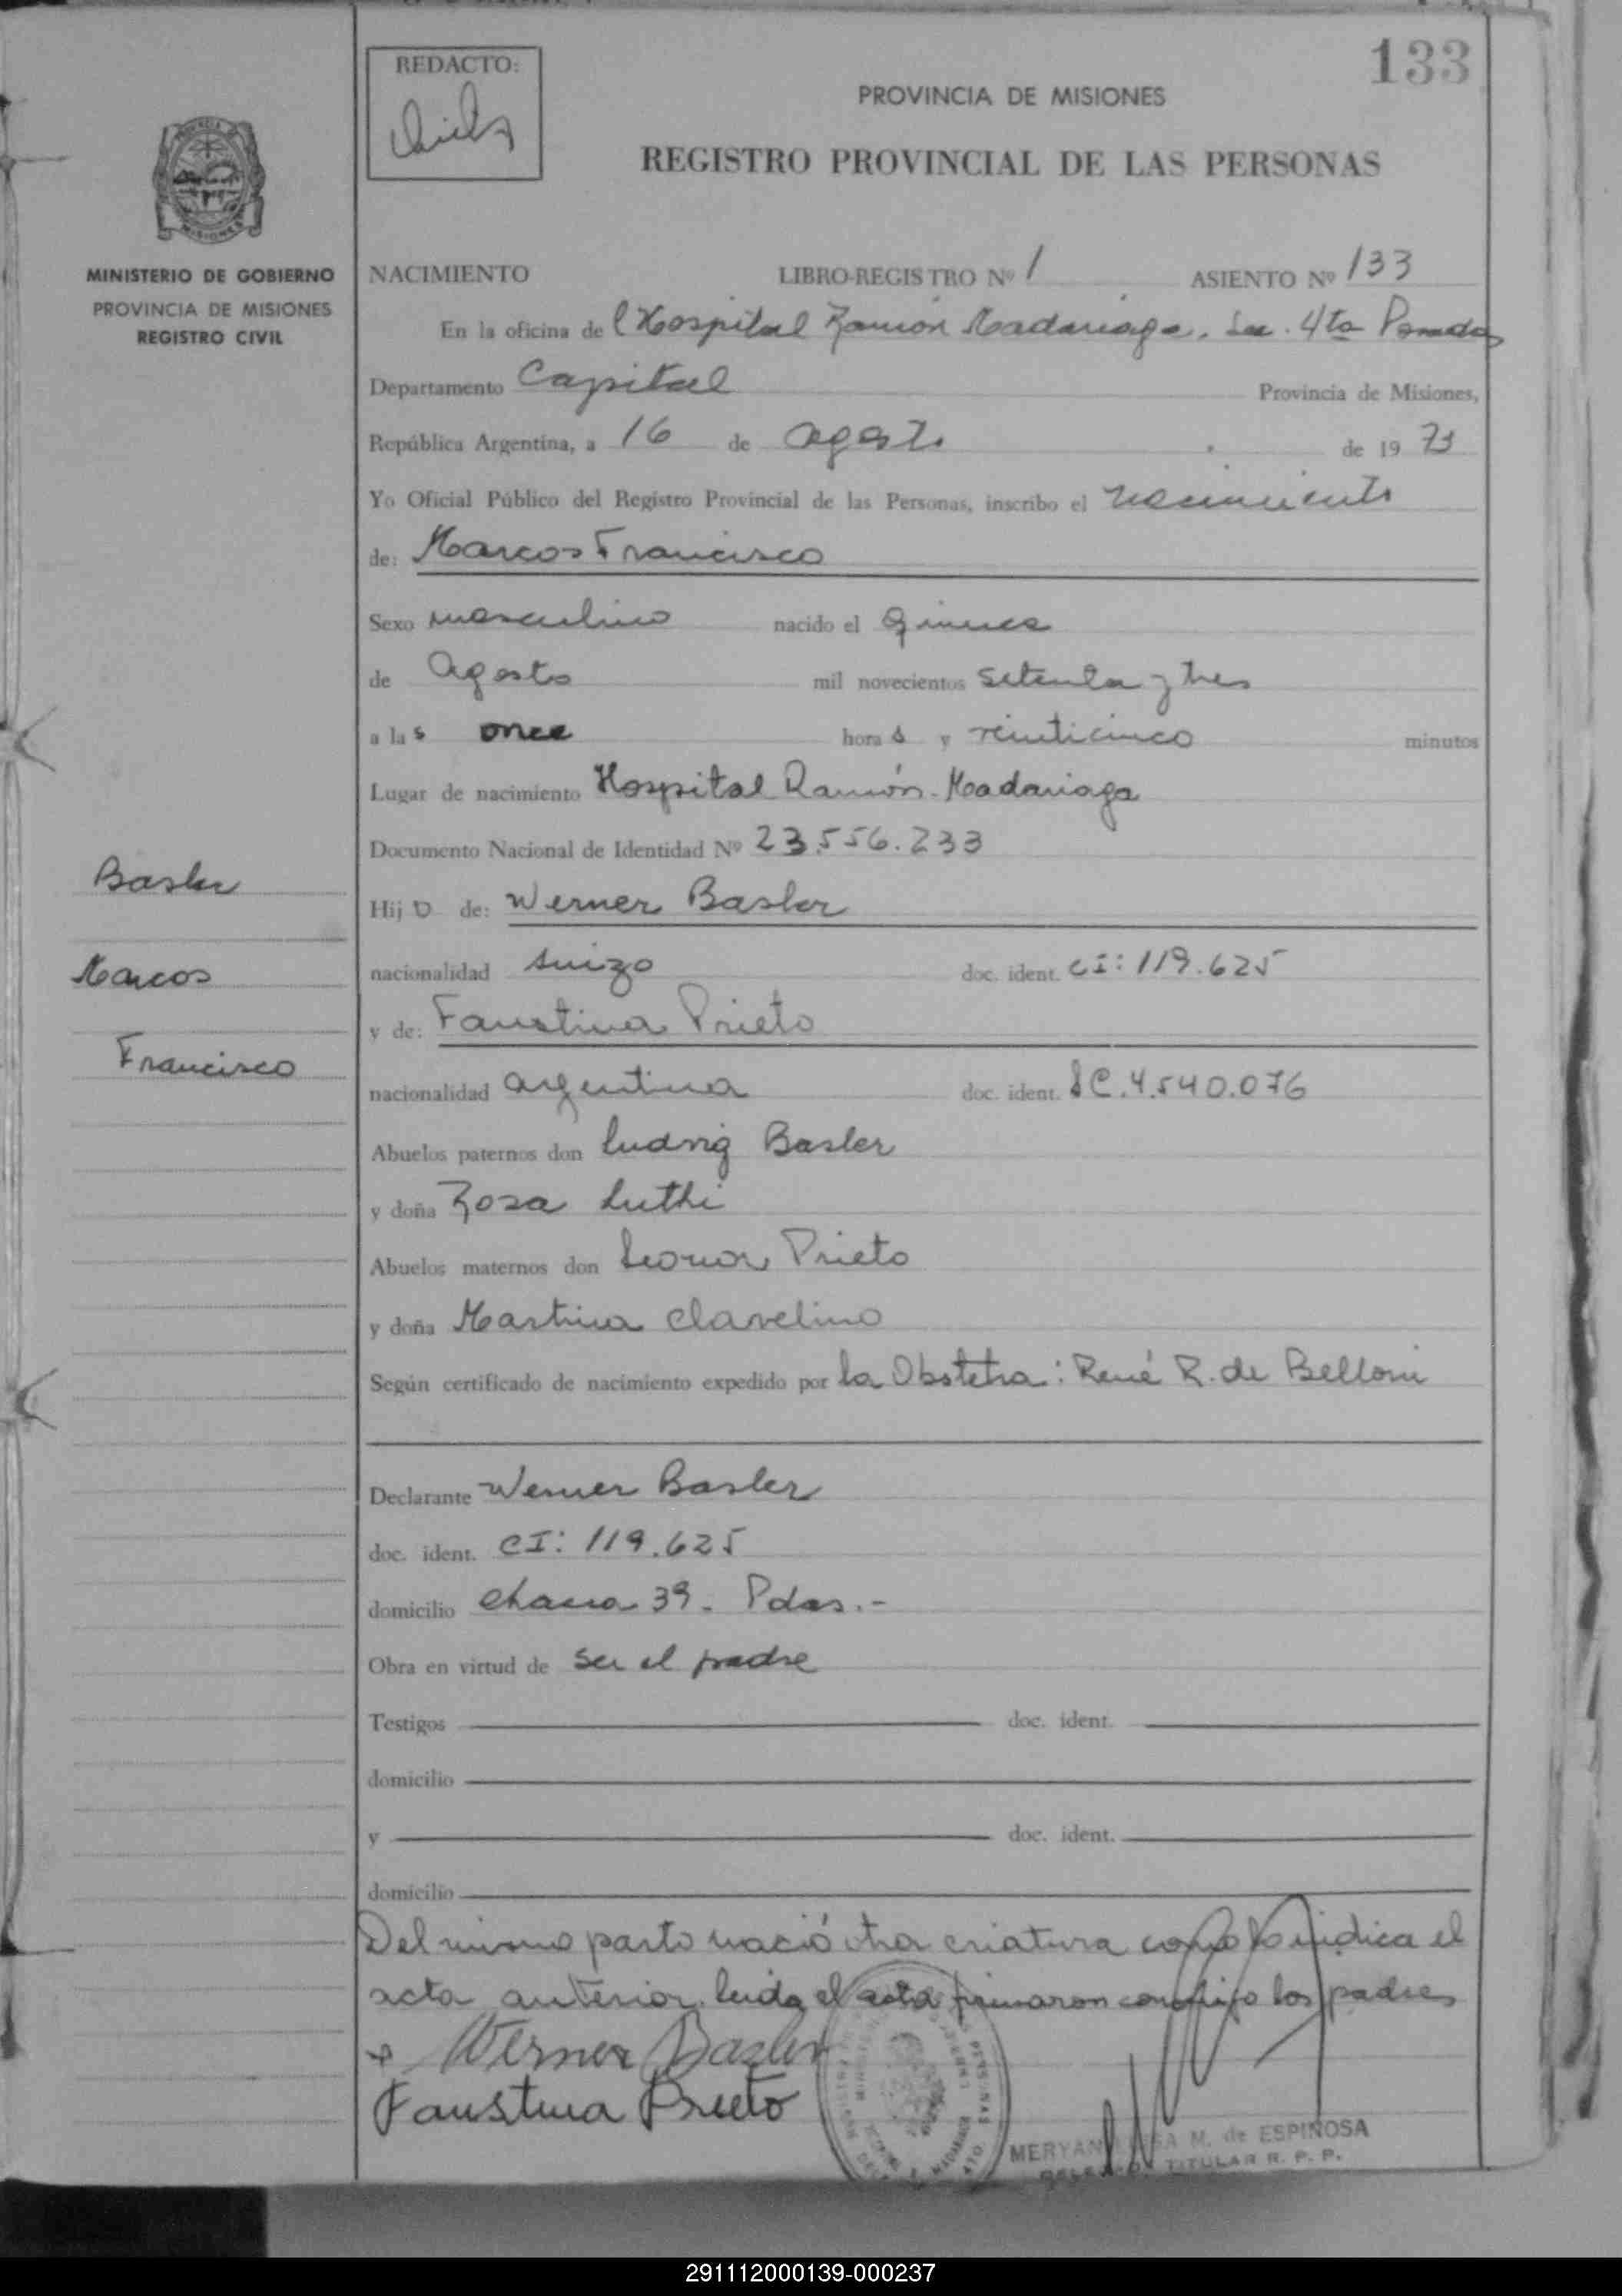 133
REDACTO:
PROVINCIA DE MISIONES
REGISTRO PROVINCIAL DE LAS PERSONAS
MINISTERIO DE GOBIERNO
PROVINCIA DE MISIONES
REGISTRO CIVIL
NACIMIENTO LIBRO-REGISTRO Nº 1 ASIENTO Nº 133
En la oficina del Hospital Ramón Madariaga, Sec. 4ta Posadas
Departamento Capital Provincia de Misiones,
República Argentina, a 16 de agosto de 1973
Yo Oficial Público del Registro Provincial de las Personas, inscribo el nacimiento
de: Marcos Francisco
Sexo masculino nacido el quince
de Agosto mil novecientos setenta y tres
a las once horas y veinticinco minutos
Lugar de nacimiento Hospital Ramón Madariaga
Documento Nacional de Identidad Nº 23.556.233
Basler
Hijo de: Werner Basler
Marcos
nacionalidad suizo doc. ident. CI: 119.625
y de: Faustina Prieto
Francisco
nacionalidad argentina doc. ident. LC. 4.540.076
Abuelos paternos don Ludwig Basler
y doña Rosa Luthi
Abuelos maternos don Leonor Prieto
y doña Martina Clavelino
Según certificado de nacimiento expedido por la Obstetra: René R. de Belloni
Declarante Werner Basler
doc. ident. CI: 119.625
domicilio Chacra 39. Pdas.-
Obra en virtud de ser el padre
Testigos doc. ident.
domicilio
y doc. ident.
domicilio
Del mismo parto nació otra criatura como lo indica el
acta anterior. leida el acta firmaron conmigo los padres
Werner Basler
Faustina Prieto
M. de ESPINOSA
TITULAR R. P. P.
291112000139-000237